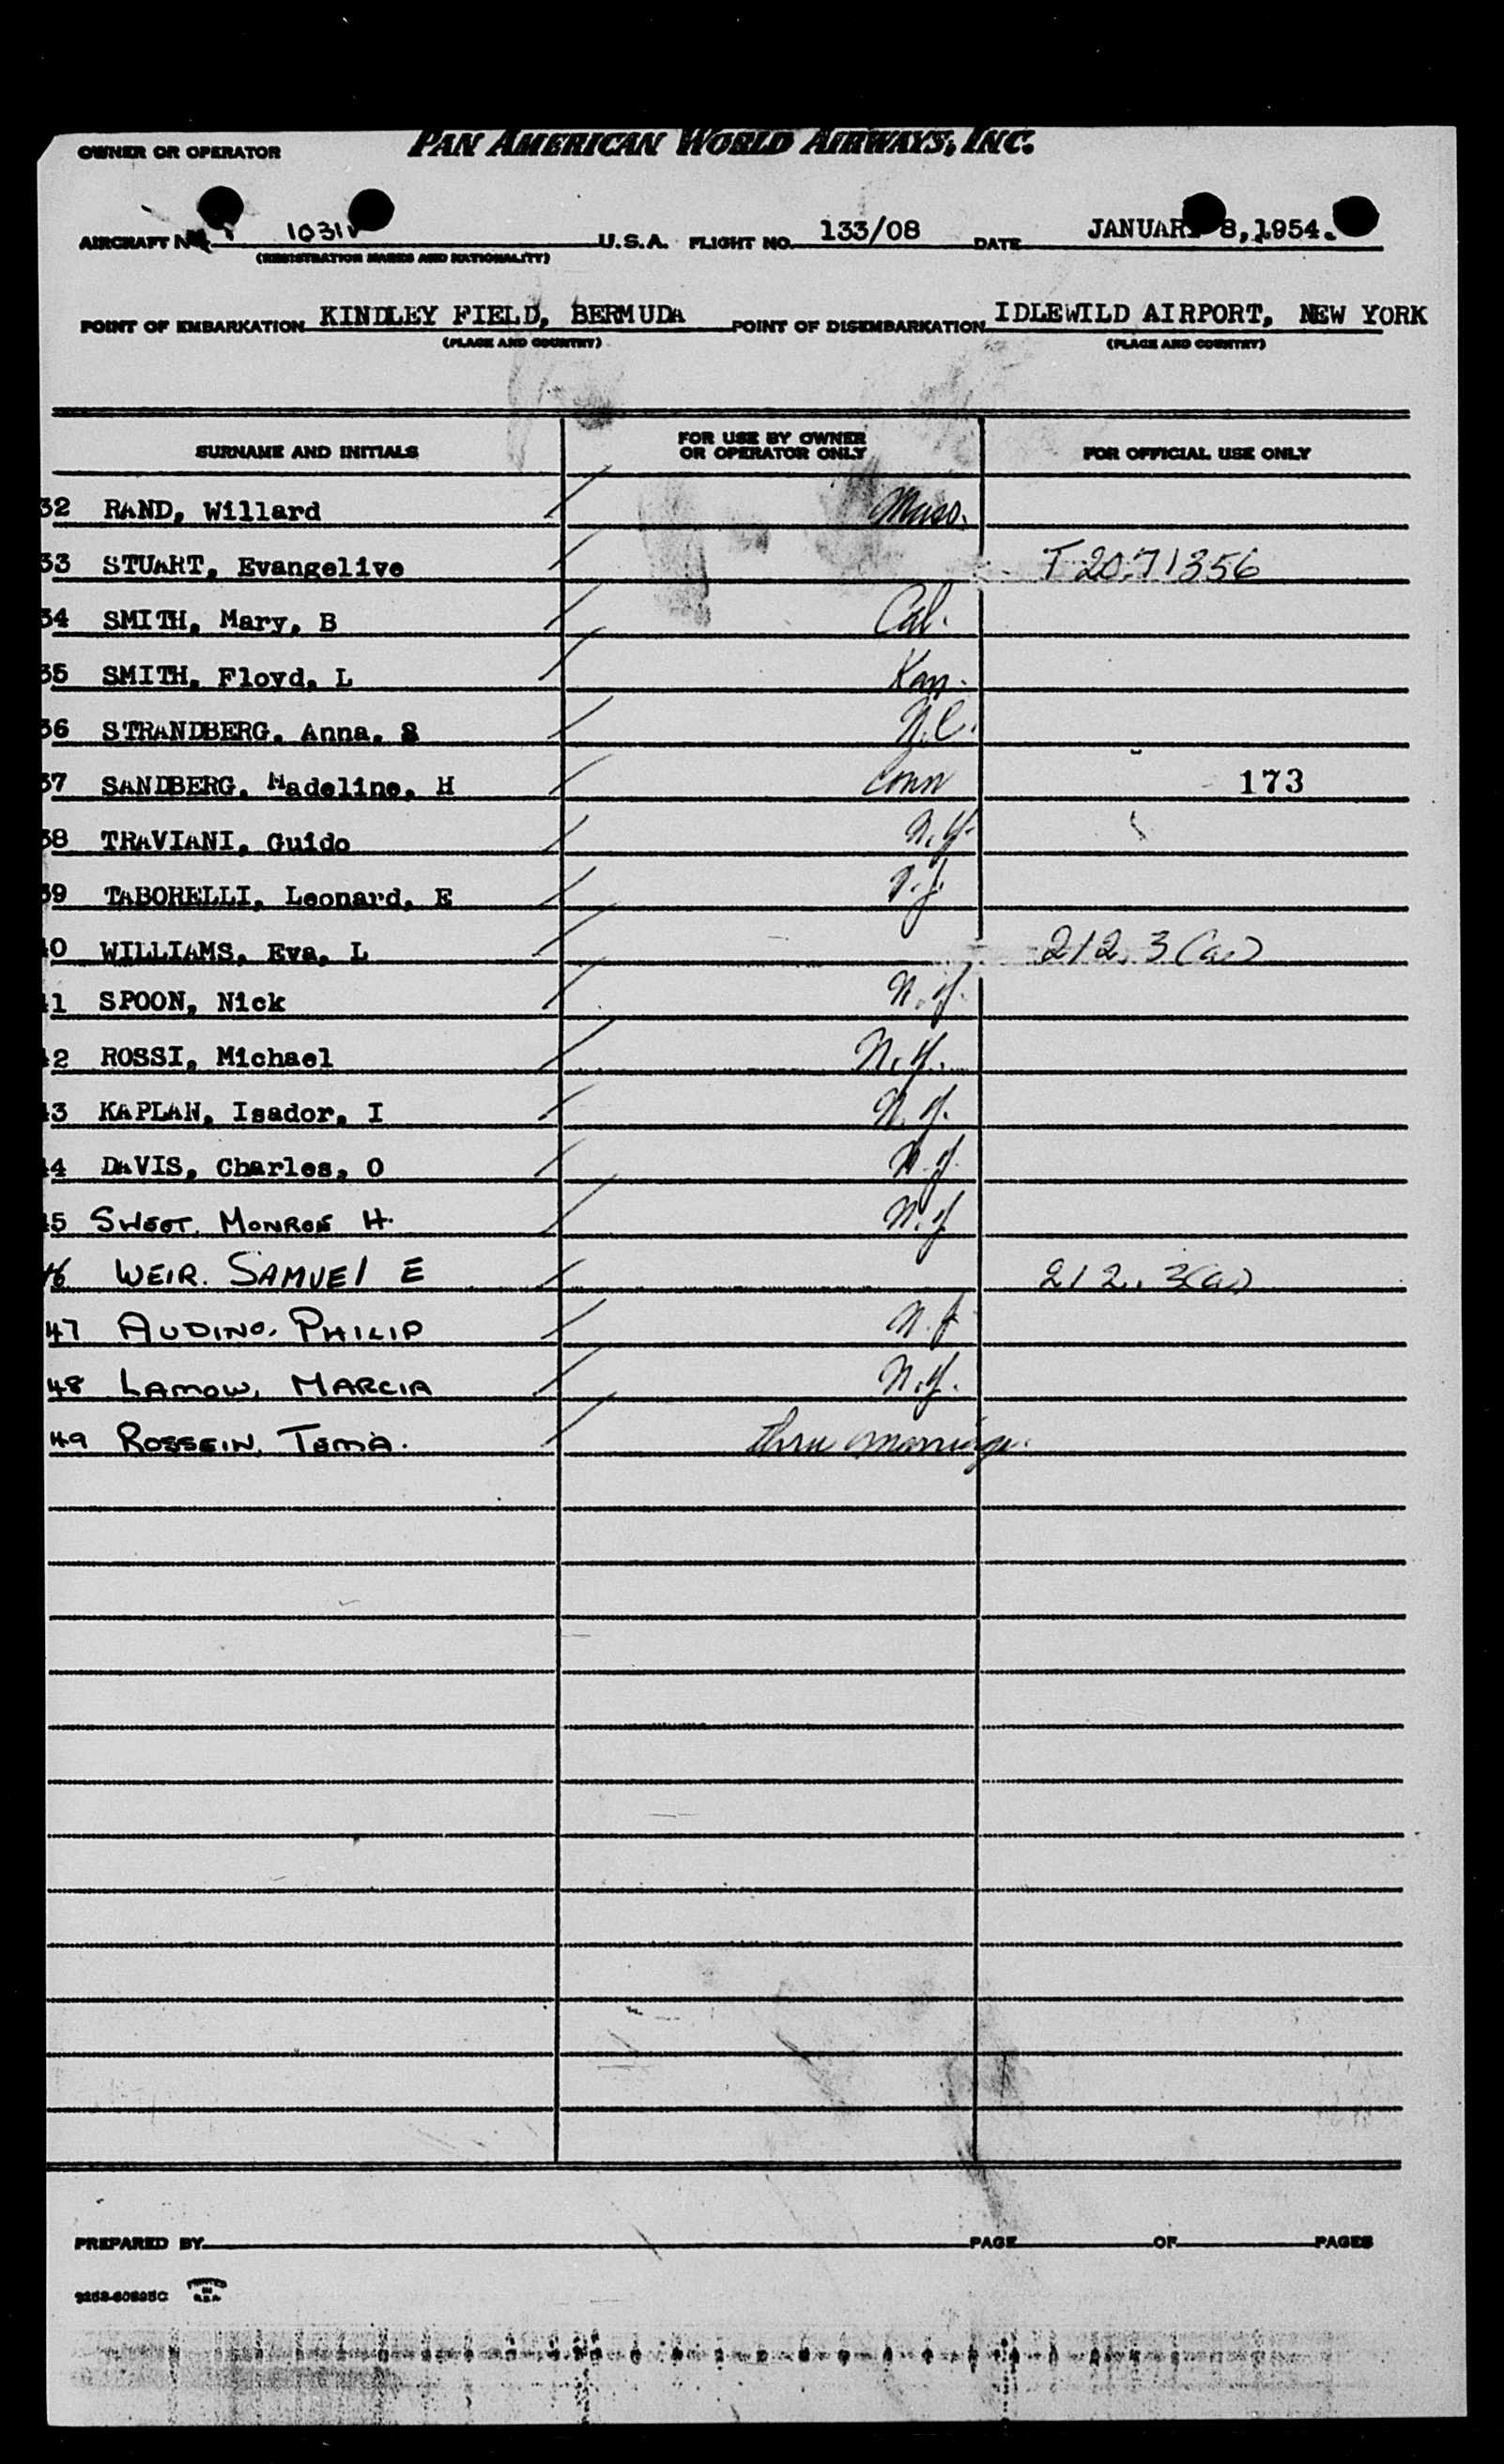 PAN AMERICAN WORLD AIRWAYS, INC.
OWNER OR OPERATOR
AIRCRAFT 1031V U.S.A. FLIGHT NO. 133/08 DATE JANUARY 8, 1954.
(REGISTRATION MARKS AND NATIONALITY)
POINT OF EMBARKATION KINDLEY FIELD, BERMUDA POINT OF DISEMBARKATION IDLEWILD AIRPORT, NEW YORK
(PLACE AND COUNTRY) (PLACE AND COUNTRY)
SURNAME AND INITIALS FOR USE BY OWNER OR OPERATOR ONLY FOR OFFICIAL USE ONLY
32 RAND, Willard Mass.
33 STUART, Evangelive T 2071356
34 SMITH, Mary, B Cal.
35 SMITH, Floyd, L Kan.
36 STRANDBERG, Anna, S N.C.
37 SANDBERG, Madeline, H Conn 173
38 TRAVIANI, Guido N.Y.
39 TABORELLI, Leonard, E N.J.
40 WILLIAMS, Eva, L 212.3(a)
41 SPOON, Nick N.Y.
42 ROSSI, Michael N.Y.
43 KAPLAN, Isador, I N.Y.
44 DAVIS, Charles, O N.Y.
45 SWEET, MONROE H. N.Y.
46 WEIR. SAMUEL E 212.3(a)
47 AUDINO, PHILIP
48 LAMOW, MARCIA N.Y.
49 ROSSEIN, TEMA. thru marriage.
PREPARED BY PAGE OF PAGES
PRINTED IN U.S.A.